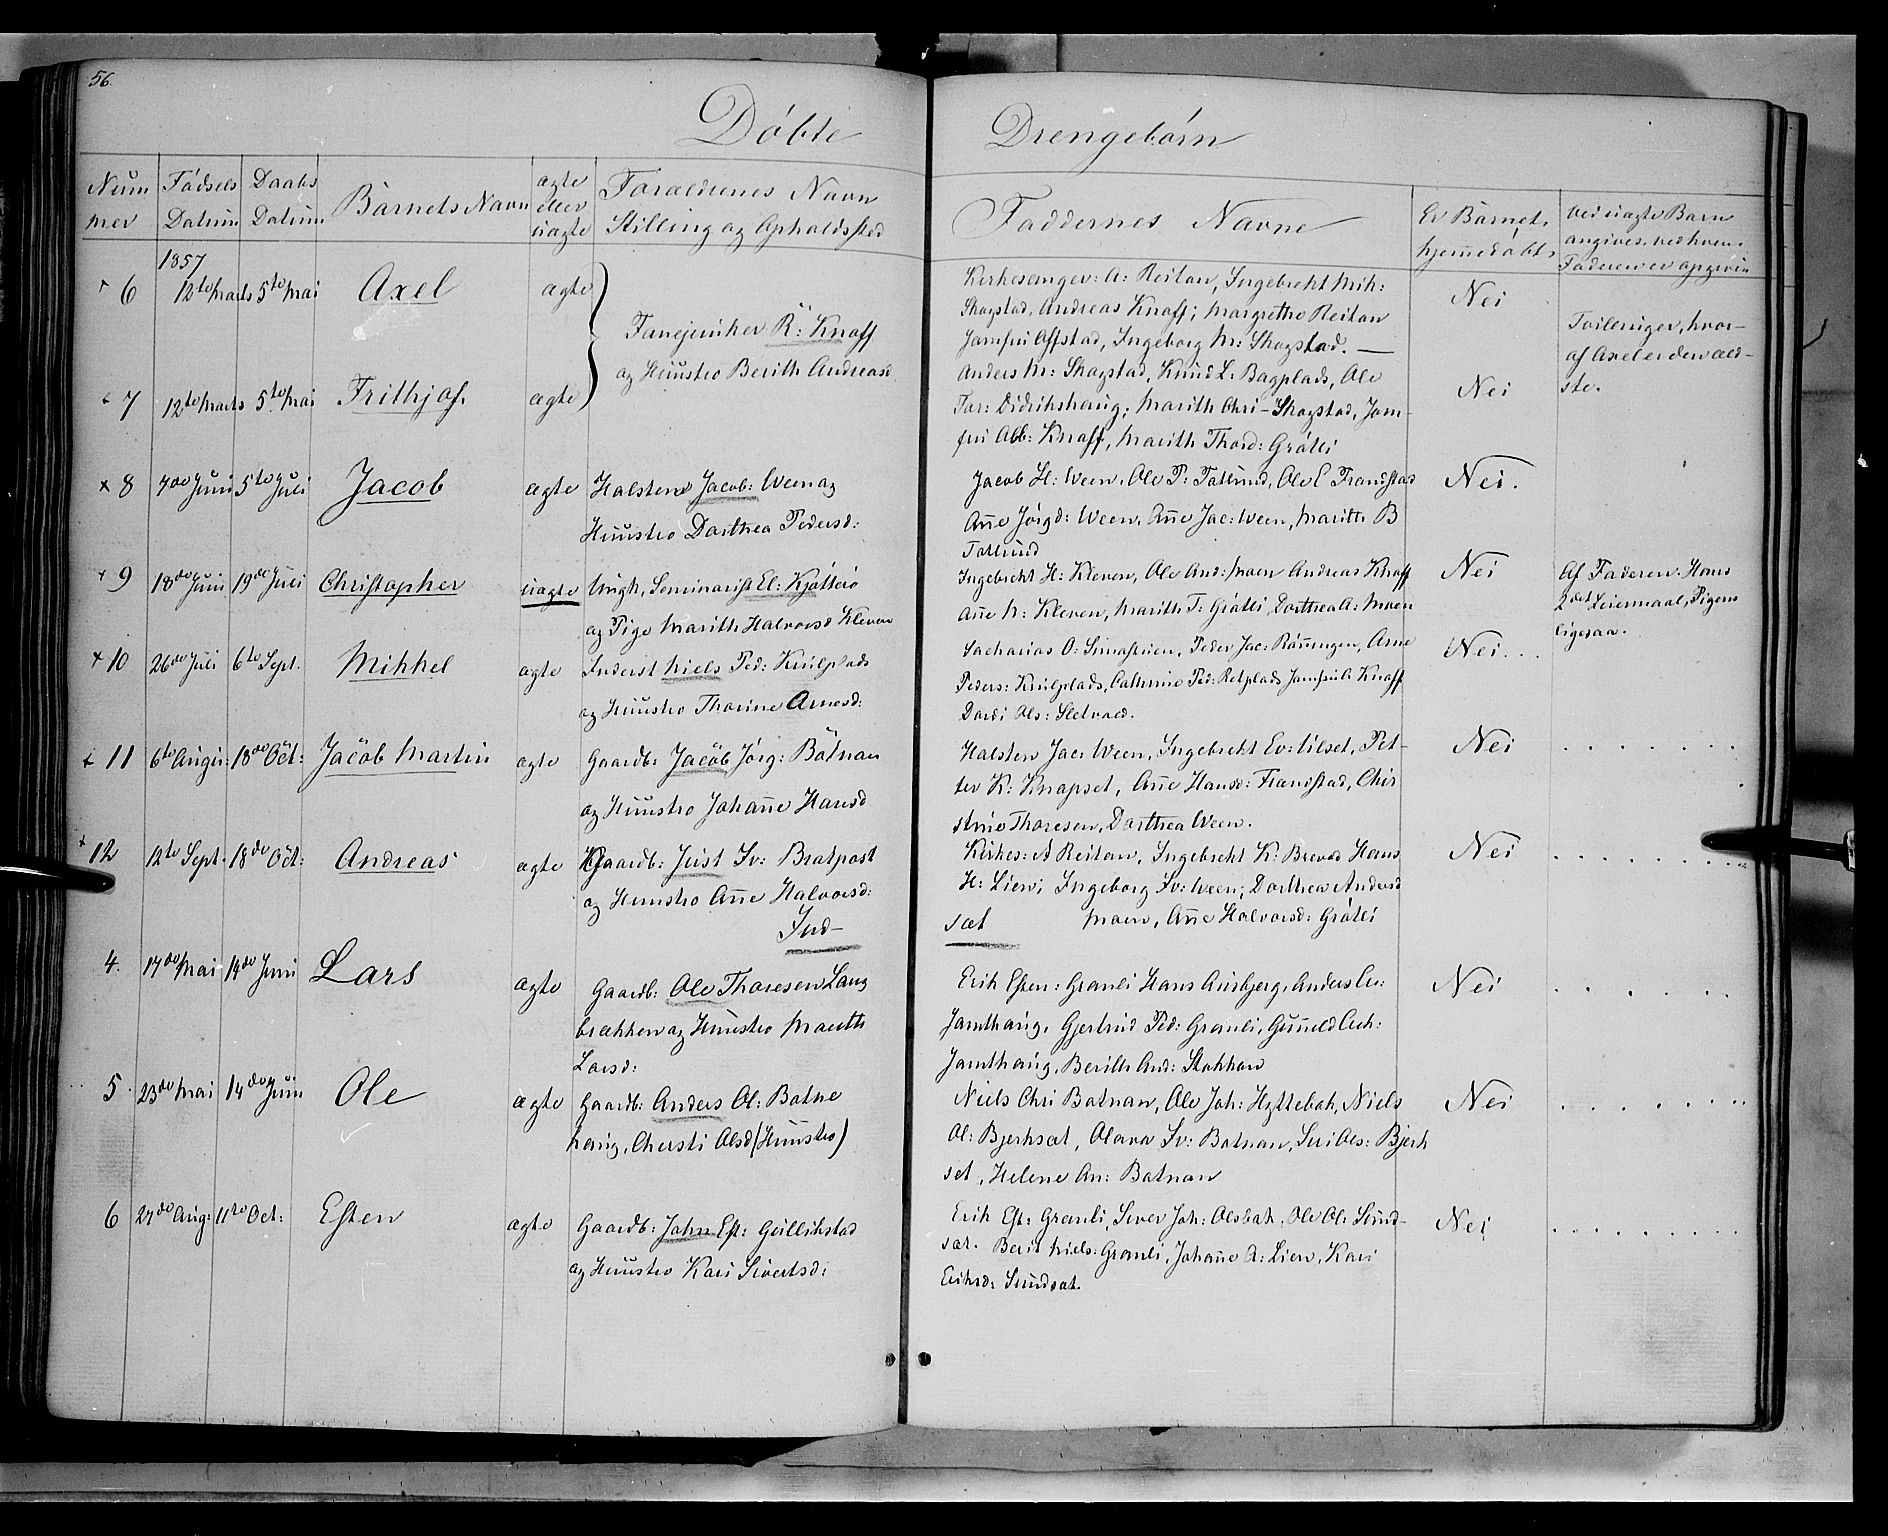 56.
Døbte Drengebørn
Num
mer
Fødsels
Datum
Daabs
Datum
Barnets Navn
ægte
eller
uægte
Forældrenes Navn
Stilling og Opholdssted
Faddernes Navne
Er Barnet
hjemmedøbt
Ved uægte Børn
angives, ved hvem
Faderen er opgiven
1857
6 12te Marts 5te Mai Axel ægte
Fanejunker R: Knoff
og Hustro Berith Andreasd
Kirkesanger: A: Reitan, Ingebrekt Mik:
Skogstad, Andreas Knoff; Margrethe Reitan
Jomfru Offstad, Ingeborg M: Skogstad. —
Nei
Tvilunger, hvor-
af Axel er den æld-
ste.
7 12te Marts 5te Mai Frithjof. ægte
Anders M: Skogstad, Knud L: Bagplads, Ole
Tor: Didrikshaug; Marith Chri- Skogstad, Jom-
fru Abb: Knoff, Marith Thord: Gråtli
Nei
x 8 7de Juni 5te Juli Jacob ægte
Halsten Jacob: Ween og
Huustro Dorthea Pedersd:
Jacob H: Ween, Ole P: Tatlund, Ole E Frandstad
Añe Jørgd: Ween, Añe Jac: Ween, Marith B
Tatlund
Nei.
x 9 18de Juni 19de Juli Christopher uægte
Ungk, Seminarist El: Kjøtterø
og Pige Marith Halvorsd Kleven
Ingebrekt H: Kleven, Ole And: Moen Andreas Knoff
Añe M: Kleven, Marith T: Gråtli, Dorthea A: Moen
Nei
Af Faderen: Hans
2det Leiermaal, Pigens
ligesaa.
x 10 26de Juli 6te Sept. Mikkel ægte
Inderst Niels Ped: Kulplads
og Huustro Thorine Arnesd:
Zacharias O: Simastuen, Peder Jac: Rønningen, Arne
Peders: Kulplads, Cathrine Ped: Retplads Jomfru L Knoff
Dordi Ols: Sletvold.
Nei...
x 11 6te Augu: 18de Oct: Jacob Martin ægte
Gaardb: Jacob Jørg: Botnan
og Huustro Johañe Hansd
Halsten Jac: Ween, Ingebrekt Ev: Uilset, Pet-
ter K: Knapset, Añe Hansd: Frandstad, Chir
stine Thoresen, Dorthea Ween.
Nei . . . . . . . .
x 12 12te Sept. 18de Oct: Andreas ægte
Gaardb: Just Iv: Bratpost
og Huustro Añe Halvorsd:
Kirkes: A Reitan, Ingebrekt K: Brevad Hans
H: Lien; Ingeborg Iv: Ween; Dorthea Andersd
Moen, Añe Halvorsd: Gråtli
Nei . . . . . . . .
Ind-
sæt
4. 17de Mai 14de Juni Lars ægte
Gaardb: Ole Thoresen Lang
brækken og Huustro Marith
Larsd:
Erik Esten: Granli Hans Ausbjerg, Anders Er:
Jamthaug, Gjertrud Ped: Granli, Gunild Erk:
Jamthaug, Berith And: Stokkan
Nei . . . . . .
5. 23de Mai 14de Juni Ole ægte
Gaardb: Anders Ol: Botne
haug, Chersti Olsd (Huustro)
Niels Chri Botnan, Ole Joh: Hyttebak, Niels
Ol: Bjerksæt, Olava Iv: Botnan, Siri Ols: Bjerk
set, Helene An: Botnan
Nei . . . . . . . .
6 27de Aug: 11te Oct: Esten ægte
Gaardb: John Est: Gullikstad
og Huustro Kari Sivertsd:
Erik Est: Granli, Sever Joh: Olsbak, Ole Ol: Sund-
sæt. Berit Niels: Granli, Johañe A: Lien, Kari
Eriksd: Sundsæt.
Nei . . . . . . . .